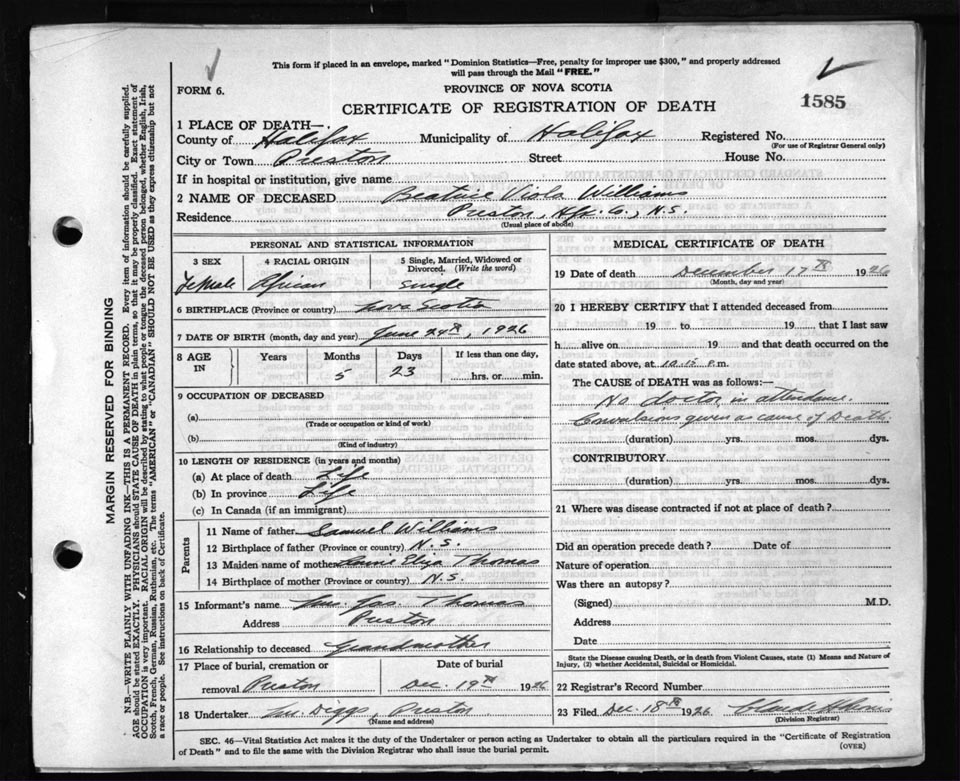 This form if placed in an envelope, marked "Dominion Statistics—Free, penalty for improper use $300," and properly addressed
will pass through the Mail "FREE."
FORM 6.
PROVINCE OF NOVA SCOTIA
CERTIFICATE OF REGISTRATION OF DEATH
1585
1 PLACE OF DEATH—
County of Halifax Municipality of Halifax Registered No.
(For use of Registrar General only)
City or Town Preston Street House No.
If in hospital or institution, give name
2 NAME OF DECEASED Beatrice Viola Williams
Residence Preston, Hfx. Co., N.S.
(Usual place of abode)
PERSONAL AND STATISTICAL INFORMATION
3 SEX 4 RACIAL ORIGIN 5 Single, Married, Widowed or
Divorced. (Write the word)
Female African Single
6 BIRTHPLACE (Province or country) Nova Scotia
7 DATE OF BIRTH (month, day and year) June 24th, 1926
8 AGE IN Years Months Days If less than one day,
5 23 hrs. or min.
9 OCCUPATION OF DECEASED
(a)
(Trade or occupation or kind of work)
(b)
(Kind of industry)
10 LENGTH OF RESIDENCE (in years and months)
(a) At place of death Life
(b) In province Life
(c) In Canada (if an immigrant)
Parents
11 Name of father Samuel Williams
12 Birthplace of father (Province or country) N.S.
13 Maiden name of mother Annie Eliza Thomas
14 Birthplace of mother (Province or country) N.S.
15 Informant's name Mrs. Jas. Thomas
Address Preston
16 Relationship to deceased Grandmother
17 Place of burial, cremation or Date of burial
removal Preston Dec. 19th 1926
18 Undertaker Mr. Diggs, Preston
(Name and address)
MEDICAL CERTIFICATE OF DEATH
19 Date of death December 17th 1926
(Month, day and year)
20 I HEREBY CERTIFY that I attended deceased from
19 to 19, that I last saw
h alive on 19 and that death occurred on the
date stated above, at 10.15 P.m.
The CAUSE of DEATH was as follows:—
No doctor in attendance.
Convulsions given as cause of Death.
(duration) yrs. mos. dys.
CONTRIBUTORY
(duration) yrs. mos. dys.
21 Where was disease contracted if not at place of death?
Did an operation precede death? Date of
Nature of operation
Was there an autopsy?
(Signed) M.D.
Address
Date
State the Disease causing Death, or in death from Violent Causes, state (1) Means and Nature of
Injury, (2) whether Accidental, Suicidal or Homicidal.
22 Registrar's Record Number
23 Filed Dec. 18th 1926
(Division Registrar)
SEC. 46—Vital Statistics Act makes it the duty of the Undertaker or person acting as Undertaker to obtain all the particulars required in the "Certificate of Registration
of Death" and to file the same with the Division Registrar who shall issue the burial permit. (OVER)
MARGIN RESERVED FOR BINDING
N.B.—WRITE PLAINLY WITH UNFADING INK—THIS IS A PERMANENT RECORD. Every item of information should be carefully supplied.
AGE should be stated EXACTLY. PHYSICIANS should STATE CAUSE OF DEATH in plain terms, so that it may be properly classified. Exact statement of
OCCUPATION is very important. RACIAL ORIGIN will be described by stating to what people or tongue the deceased person belonged, whether English, Irish,
Scotch, French, German, Russian, Ruthenian, etc. The terms "AMERICAN" or "CANADIAN" SHOULD NOT BE USED as they express citizenship but not
a race or people. See instructions on back of Certificate.